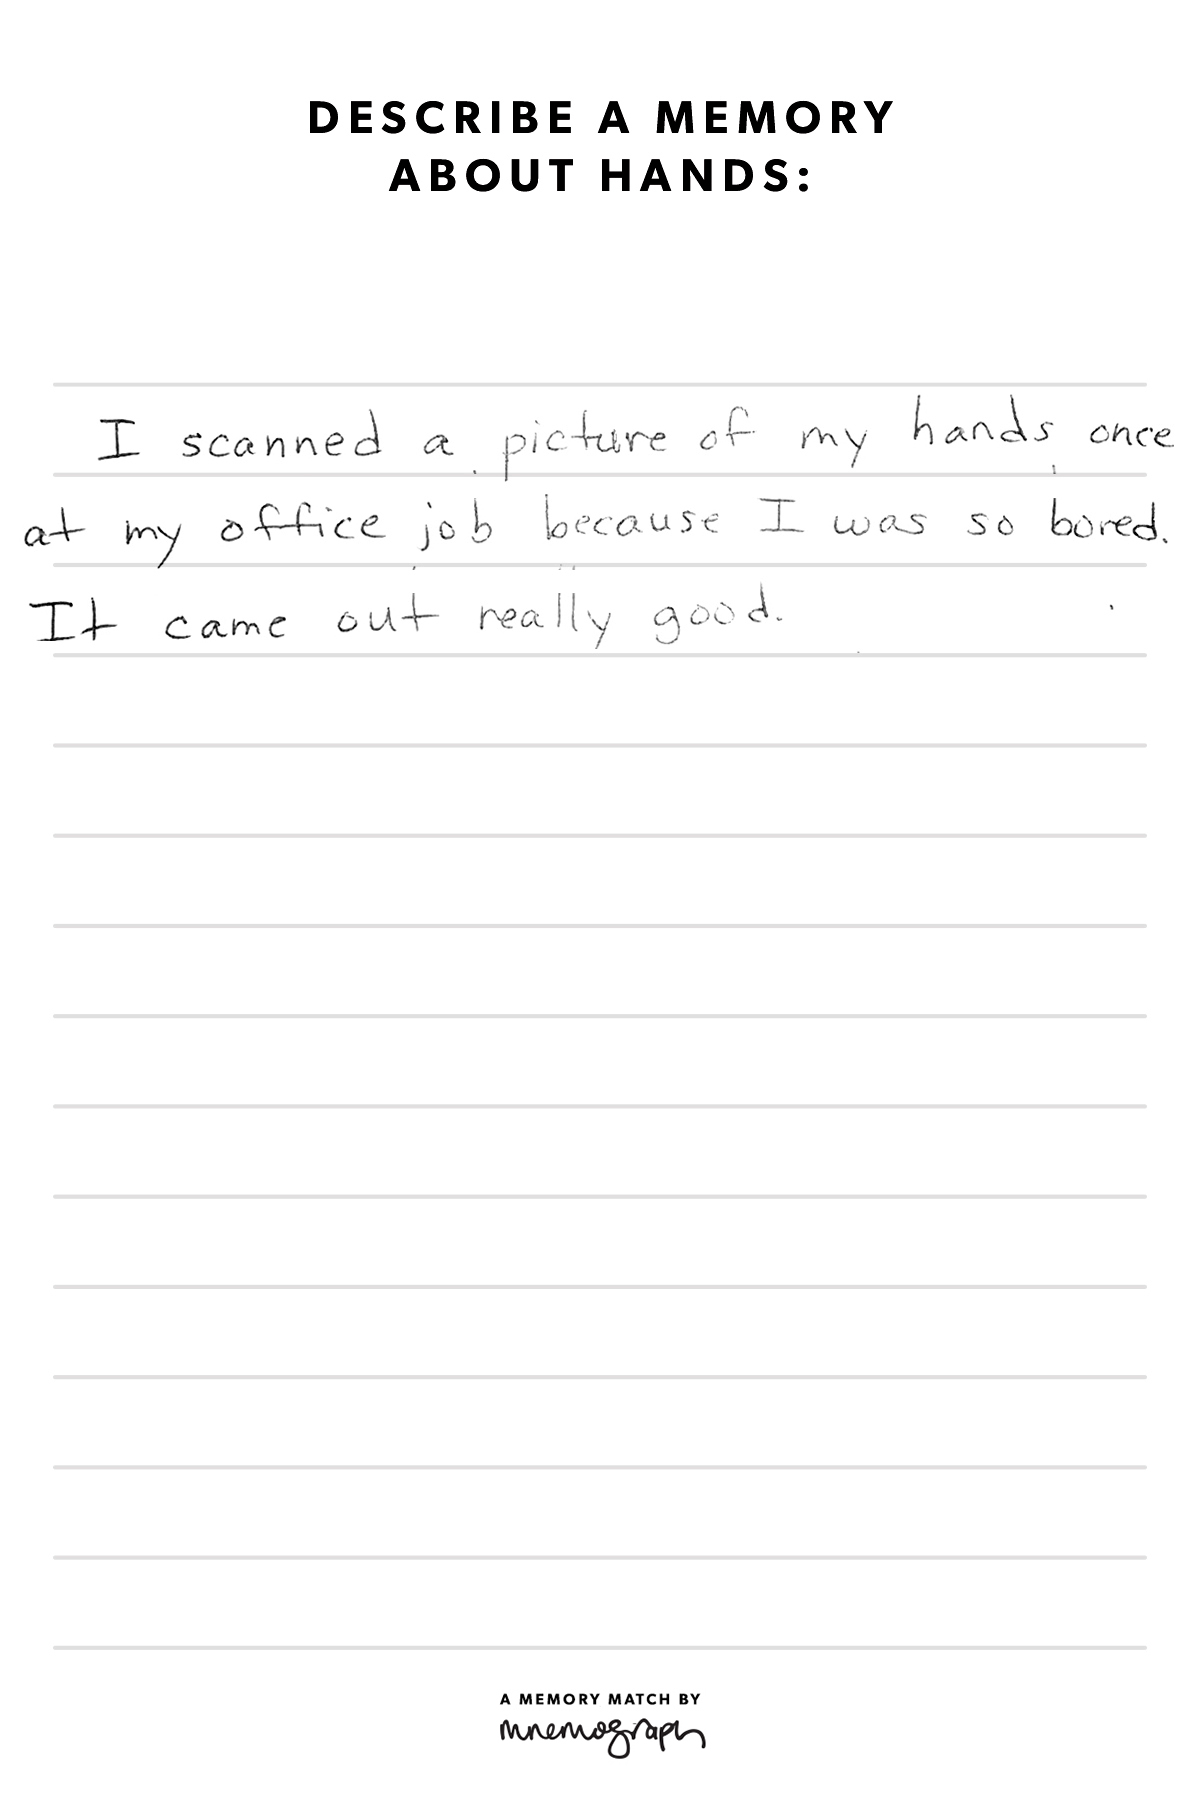 DESCRIBE A MEMORY
ABOUT HANDS:
I scanned a picture of my hands once
at my office job because I was so bored.
It came out really good.
A MEMORY MATCH BY
mnemograph